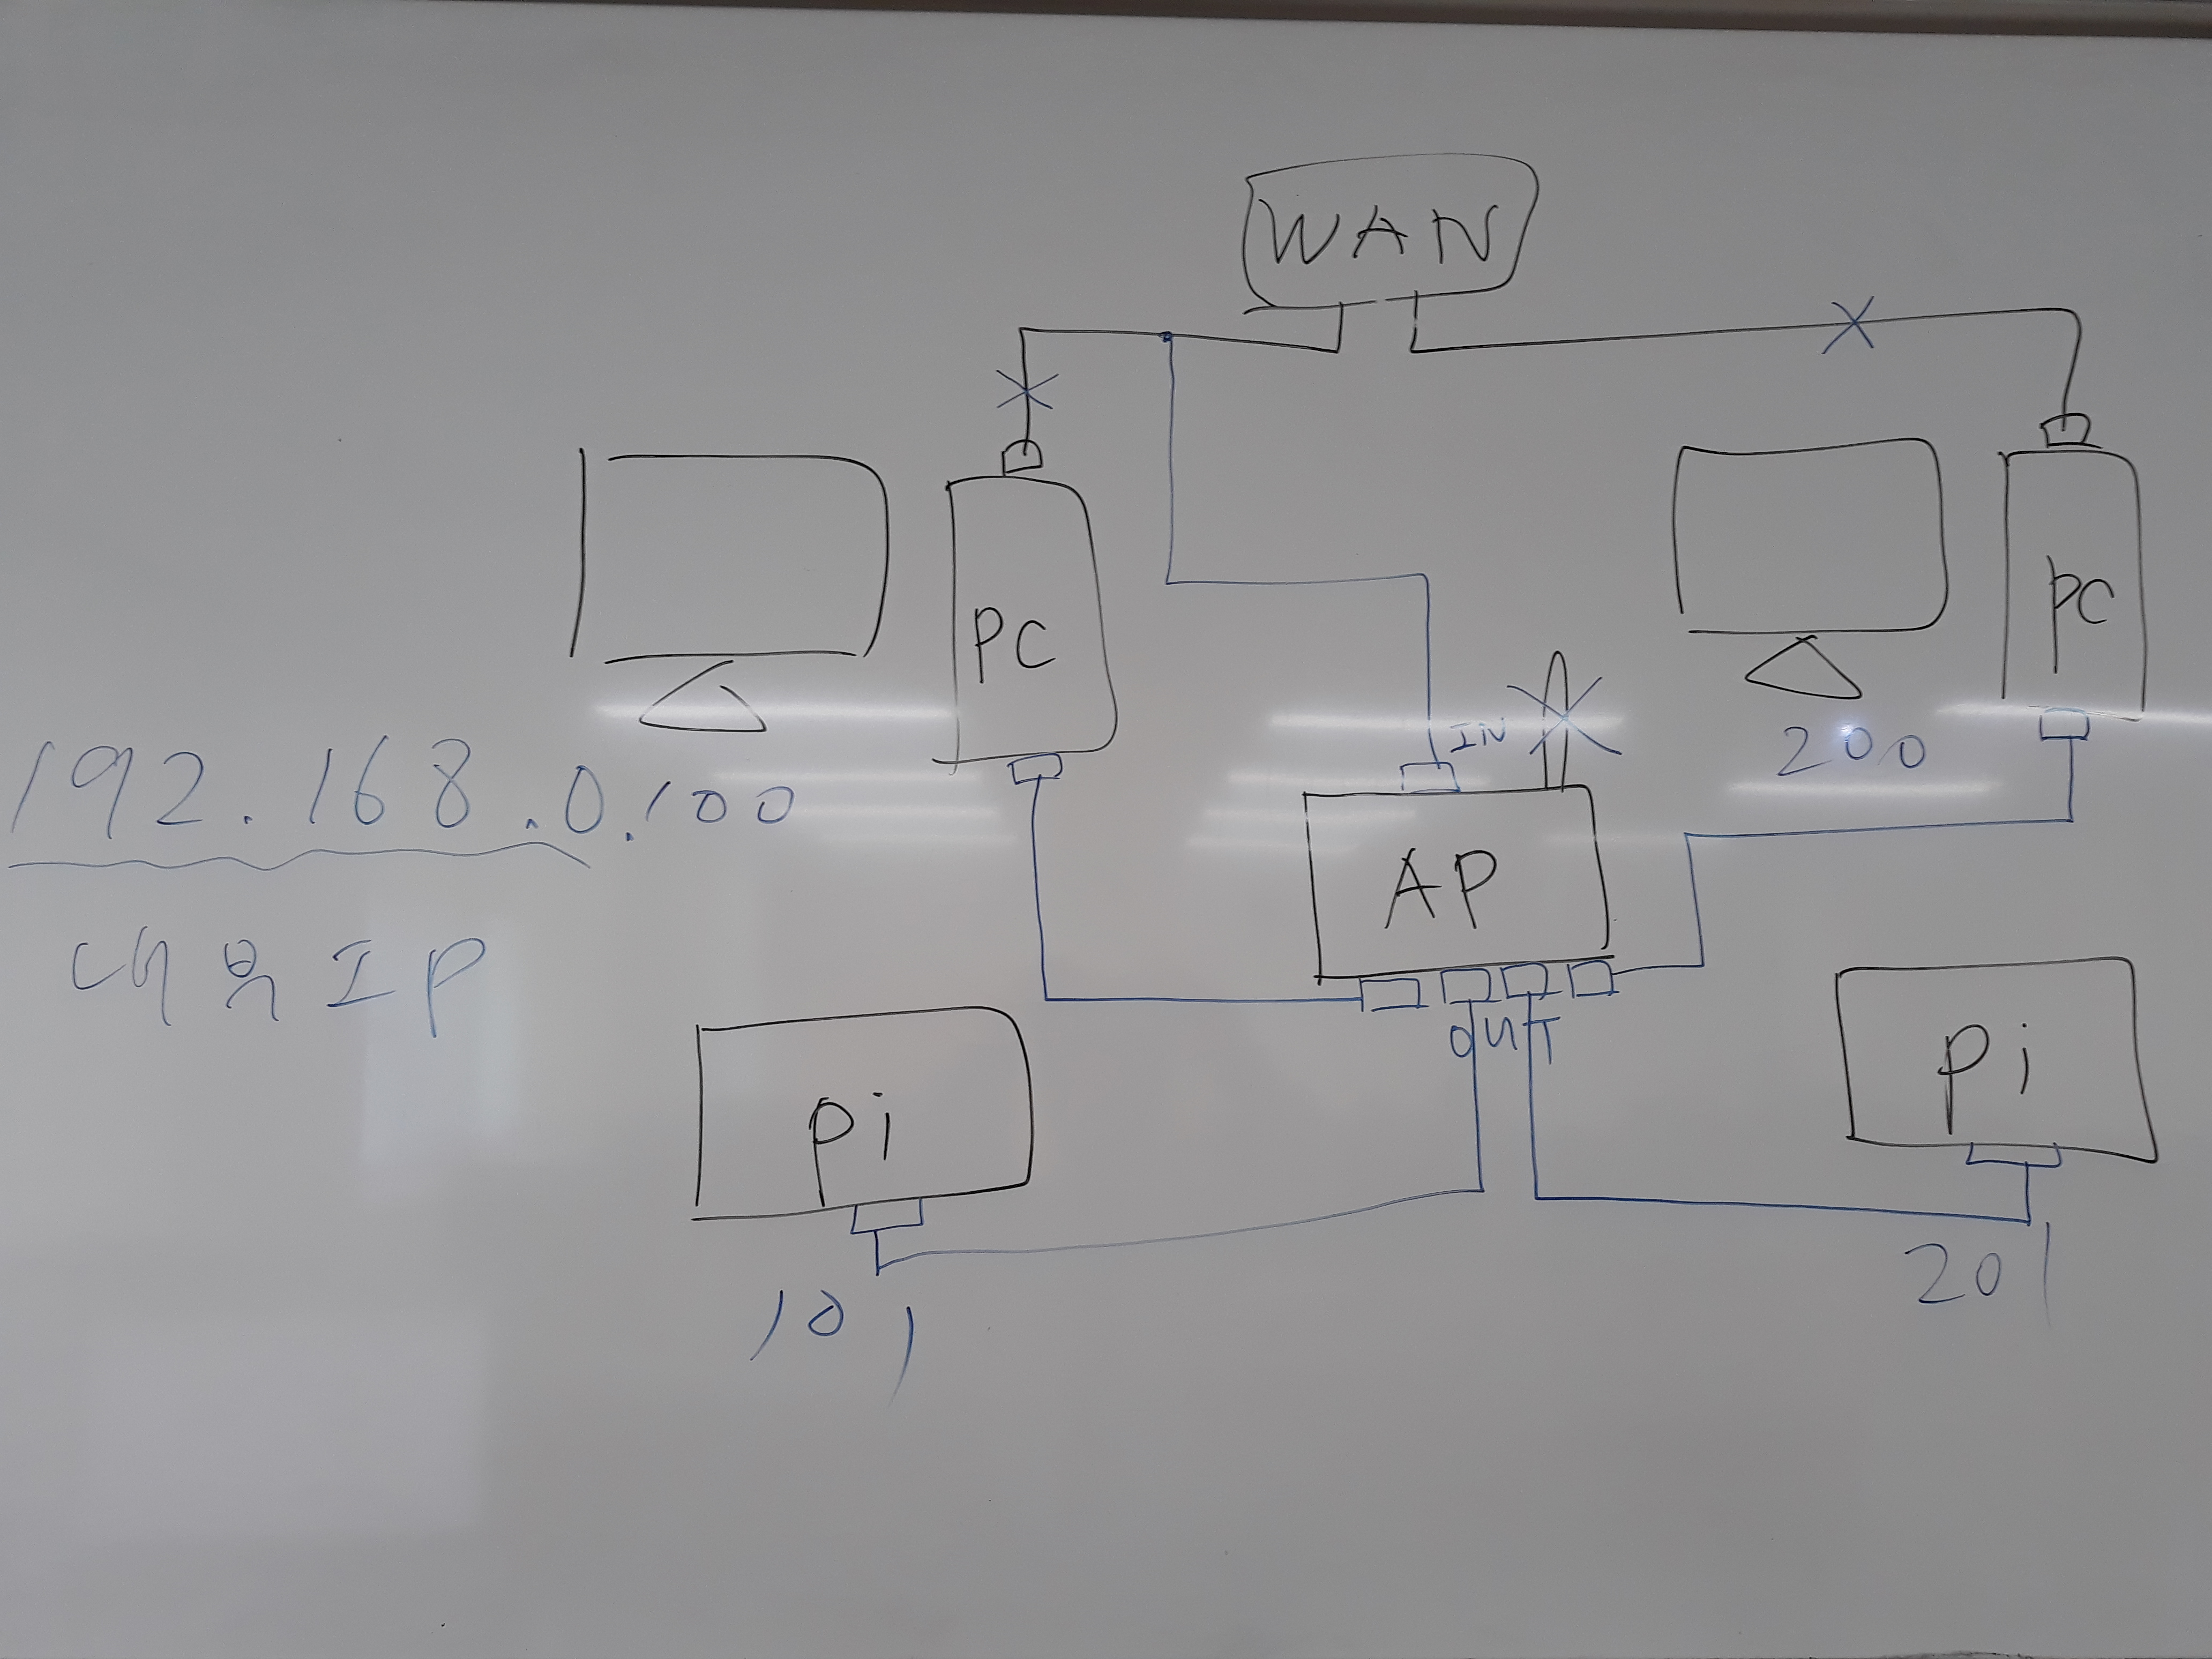 WAN
PC
PC
IN
200
192.168.0.100
AP
내욱IP
OUT
Pi
Pi
101
201